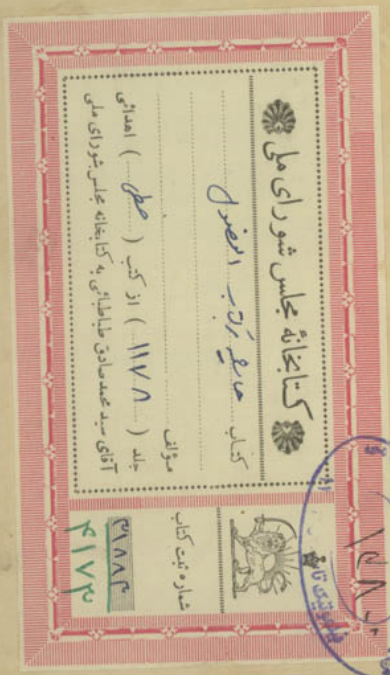 کتابخانهٔ مجلس شورای ملی
کتاب حاشیه بر کتاب الفصول
مؤلف
جلد ( ۱۱۷۸ ) از کتب ( خطی ) اهدائی
آقای سید محمد صادق طباطبائی به کتابخانهٔ مجلس شورای ملی
شماره ثبت کتاب
۳۱۸۸۳
۴۱۷۳